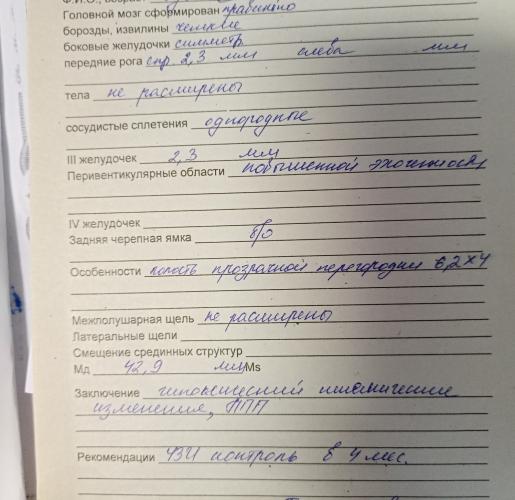 Головной мозг сформирован правильно
борозды, извилины четкие
боковые желудочки симметр
передние рога спр 2,3 мм слева мм
тела не расширены
сосудистые сплетения однородные
III желудочек 2,3 мм
Перивентикулярные области повышенной эхогенности
IV желудочек
Задняя черепная ямка б/о
Особенности полость прозрачной перегородки 6,2х4
Межполушарная щель не расширены
Латеральные щели
Смещение срединных структур
Мд 42,9 мм Ms
Заключение гипоксически ишемические
изменения, ППП
Рекомендации УЗИ контроль в 4 мес.